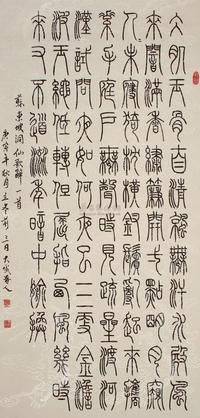 冰肌玉骨自清涼無汗水殿風
來闇香滿繡簾開一點明月窺
人人未寢欹枕釵橫鬢亂起來攜
素手庭戶無聲時見疏星渡河
漢試問夜如何夜已三更金澹
波玉繩低轉但屈指西風幾時
來又不道流年暗中偷換
蘇東坡洞仙歌辭一首
庚寅年秋月立冬前三日大人